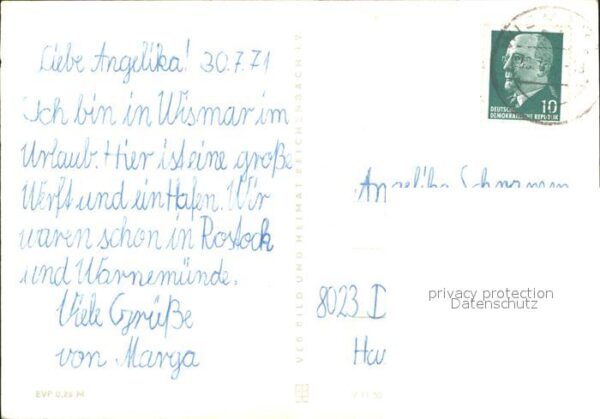 Liebe Angelika! 30.7.71
Ich bin in Wismar im
Urlaub. Hier ist eine große
Werft und ein Hafen. Wir
waren schon in Rostock
und Warnemünde.
Viele Grüße
von Marga
EVP 0,25 M
VEB BILD UND HEIMAT REICHENBACH I. V.
10
DEUTSCHE
DEMOKRATISCHE REPUBLIK
Angelika
8023 D
Ha
privacy protection
Datenschutz